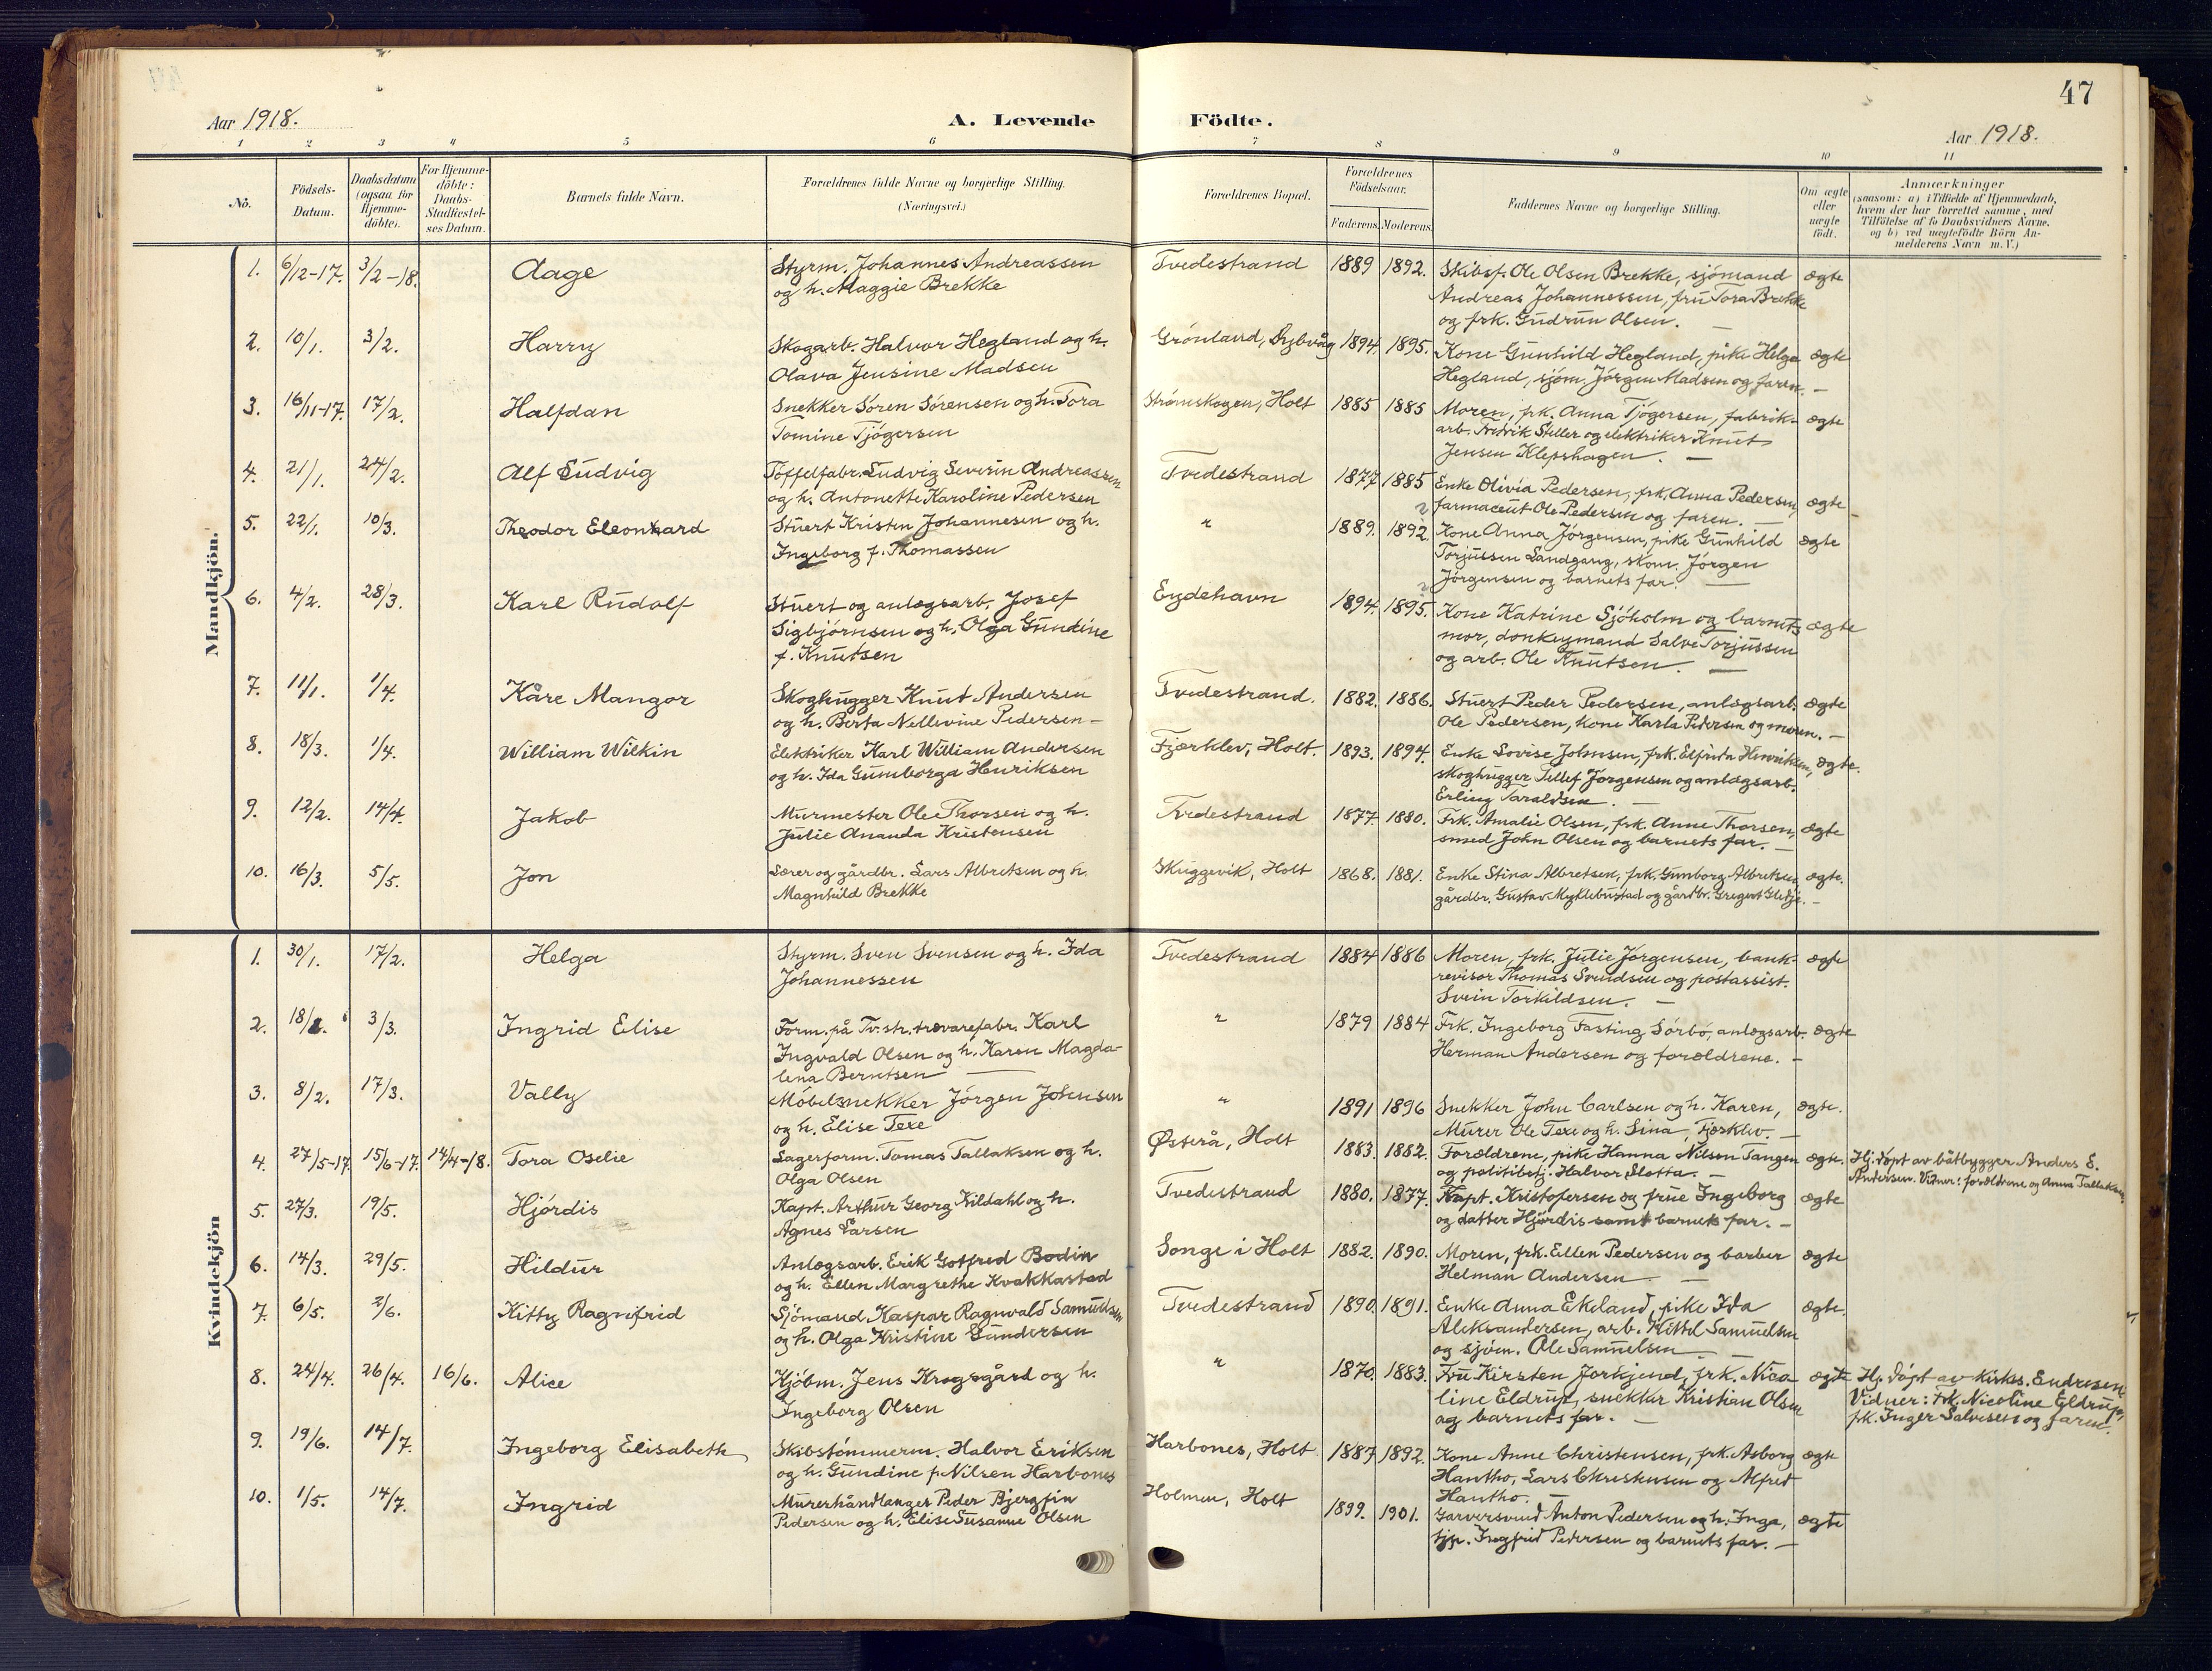 47
Aar 1918.
A. Levende Födte.
Aar 1918.
1 2 3 4 5 6 7 8 9 10 11
No.
Födsels-
Datum.
Daabsdatum
(ogsaa for
Hjemme-
döbte).
For Hjemme-
döbte:
Daabs-
Stadfæstel-
ses Datum.
Barnets fulde Navn.
Forældrenes fulde Navne og borgerlige Stilling.
(Næringsvei.)
Forældrenes Bopæl.
Forældrenes
Födselsaar.
Faderens. Moderens.
Faddernes Navne og borgerlige Stilling.
Om ægte
eller
uægte
födt.
Anmærkninger
(saasom: a) i Tilfælde af Hjemmedaab,
hvem der har forrettet samme, med
Tilföielse af to Daabsvidners Navne,
og b) ved uægtefödte Börn An-
melderens Navn m. V.)
Mandkjön.
1. 6/12-17. 3/2-18. Aage
Styrm. Johannes Andreassen
og h. Maggie Brekke
Tvedestrand 1889 1892.
Skibsf. Ole Olsen Brekke, sjömand
Andreas Johannessen, fru Tora Brekke
og frk. Gudrun Olsen. –
ægte
2. 10/1. 3/2. Harry
Skogarb. Halvor Hegland og h.
Olava Jensine Madsen
Grönland, Dybvåg 1894. 1895.
Kone Gunhild Hegland, pike Helga
Hegland, sjöm. Jörgen Madsen og faren. –
ægte
3. 16/11-17. 17/2. Halfdan
Snekker Sören Sörensen og h. Tora
Tomine Tjögersen
Strömskogen, Holt 1885 1885
Moren, frk. Anna Tjögersen, fabrik-
arb. Fredrik Stiller og elektriker Knut
Jensen Klepshagen. –
ægte
4. 21/1. 24/2. Alf Ludvig
Töffelfabr. Ludvig Severin Andreassen
og h. Antonette Karoline Pedersen
Tvedestrand 1877 1885
Enke Olivia Pedersen, frk. Anna Pedersen,
farmaceut Ole Pedersen og faren. –
ægte
5. 22/1. 10/3. Theodor Eleonhard
Stuert Kristen Johannesen og h.
Ingeborg f. Thomassen
" 1889. 1892
Kone Anna Jörgensen, pike Gunhild
Torjussen Landgang, skom. Jörgen
Jörgensen og barnets far. –
ægte
6. 4/2. 28/3. Karl Rudolf
Stuert og anlægsarb. Josef
Sigbjörnsen og h. Olga Gundine
f. Knutsen
Eydehavn 1894. 1895.
Kone Katrine Sjöholm og barnets
mor, donkeymand Salve Torjussen
og arb. Ole Knutsen. –
ægte
7. 11/1. 1/4. Kåre Mangor
Skoghugger Knut Andersen
og h. Berta Nellevine Pedersen –
Tvedestrand. 1882. 1886.
Stuert Peder Pedersen, anlægsarb.
Ole Pedersen, kone Karla Pedersen og moren. –
ægte
8. 18/3. 1/4. William Wilkin
Elektriker Karl William Andersen
og h. Ida Gumborga Henriksen
Fjærklev, Holt. 1893. 1894.
Enke Lovise Johnsen, frk. Elfrida Henriksen,
skoghugger Tellef Jörgensen og anlægsarb.
Erling Taraldsen. –
ægte.
9. 12/2. 14/4. Jakob
Murmester Ole Thorsen og h.
Julie Ananda Kristensen
Tvedestrand 1877. 1880.
Frk. Amalie Olsen, frk. Anne Thorsen,
smed John Olsen og barnets far. –
ægte
10. 16/3. 5/5. Jon
Lærer og gårdbr. Lars Albretsen og h.
Magnhild Brekke
Skuggevik, Holt 1868. 1881.
Enke Stina Albretsen, frk. Gunborg Albretsen,
gårdbr. Gustav Myklebustad og gårdbr. Gregert –
ægte.
Kvindekjön
1. 30/1. 17/2. Helga
Styrm. Sven Svensen og h. Ida
Johannessen
Tvedestrand 1884 1886
Moren, frk. Julie Jörgensen, bank-
revisor Thomas Svendsen og postassist.
Svein Torkildsen. –
ægte
2. 18/1. 3/3. Ingrid Elise
Form. på Tv.str. trævarefabr. Karl
Ingvald Olsen og h. Karen Magda-
lena Berntsen –
" 1879 1884
Frk. Ingeborg Fasting Sörbö, anlægsarb.
Herman Andersen og forældrene. –
ægte
3. 8/2. 17/3. Vally
Möbelsnekker Jörgen Johnsen
og h. Elise Texe
" 1891 1896
Snekker John Carlsen og h. Karen,
Murer Ole Texe og h. Sina, Fjærklev. –
ægte.
4. 27/5-17 15/6-17. 14/4-18. Tora Oselie
Lagerform. Tomas Tallaksen og h.
Olga Olsen
Østerå, Holt 1883. 1882.
Forældrene, pike Hanna Nilsen Tangen
og politibetj. Halvor Sletta. –
ægte.
Hj. döpt av båtbygger Anders E.
Andersen. Vidner: forældrene og Anna Tallaksen.
5. 27/3. 19/5. Hjördis
Kapt. Arthur Georg Kildahl og h.
Agnes Larsen
Tvedestrand 1880. 1877.
Kapt. Kristofersen og frue Ingeborg
og datter Hjördis samt barnets far. –
ægte
6. 14/3. 29/5. Hildur
Anlægsarb. Erik Gotfred Bodin
og h. Ellen Margrethe Kvakkastad
Songe i Holt 1882. 1890.
Moren, frk. Ellen Pedersen og barber
Helman Andersen –
ægte
7. 6/5. 2/6. Kitty Ragnfrid
Sjömand Kaspar Ragnvald Samuelsen
og h. Olga Kristine Gundersen
Tvedestrand 1890. 1891.
Enke Anna Ekeland, pike Ida
Aleksandersen, arb. Kittel Samuelsen
og sjöm. Ole Samuelsen –
ægte.
8. 24/4. 26/4. 16/6. Alice
Kjöbm. Jens Krogsgård og h.
Ingeborg Olsen
" 1870. 1883.
Fru Kirsten Jorkjend, frk. Nico
line Eldrup, snekker Kristian Olsen
og barnets far. –
ægte
Hj. döpt av kirkes. Endresen.
Vidner: Frk. Nicoline Eldrup,
frk. Inger Salvesen og faren.
9. 19/6. 14/7. Ingeborg Elisabeth
Skibstömmerm. Halvor Eriksen
og h. Gundine f. Nilsen Harbones
Harbones, Holt 1887 1892.
Kone Anne Christensen, frk. Asborg
Hantho, Lars Christensen og Alfred
Hantho. –
ægte
10. 1/5. 14/7. Ingrid
Murerhåndlanger Peder Bjergfin
Pedersen og h. Elise Susanne Olsen
Holmen, Holt 1899. 1901.
Garversvend Anton Pedersen og h. Inga,
tjp. Ingfrid Pedersen og barnets far. –
ægte